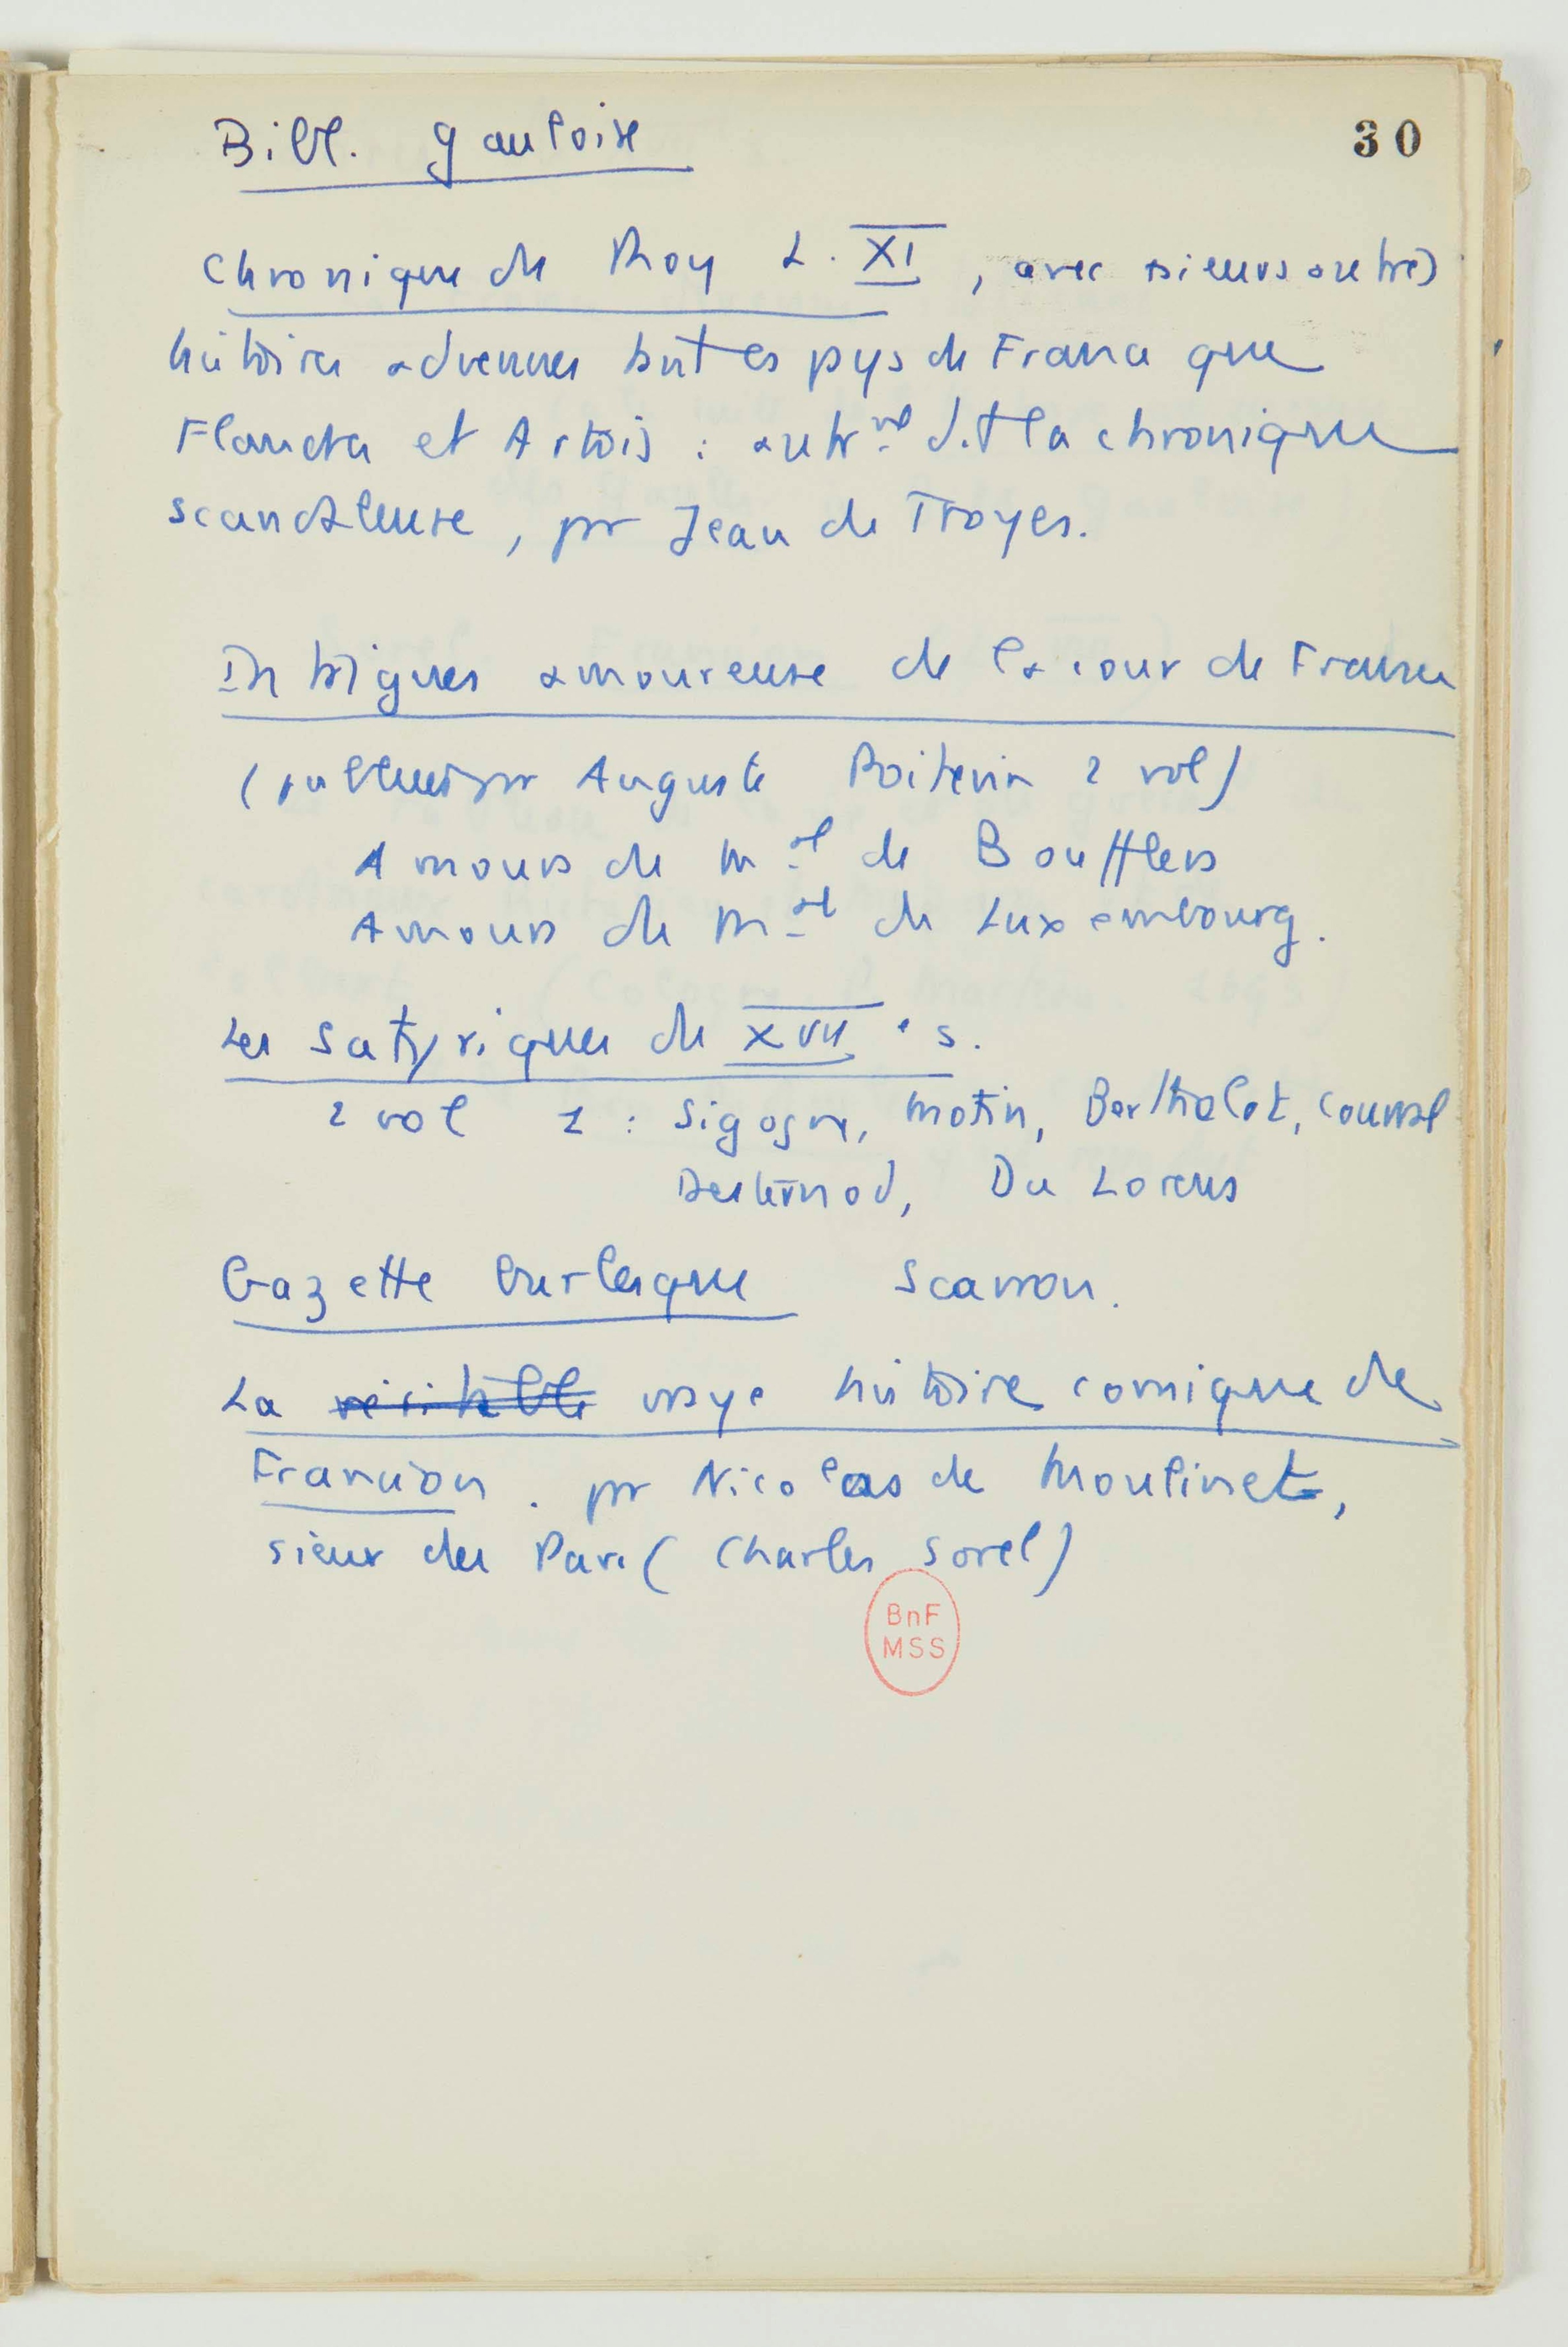 Bibl. gauloise
30
Chronique du Roy L. XI, avec diveurs autres
histoires advenues tant es pys de France que
Flandres et Artois : autrmt dit la chronique
scandaleuse, pr Jean de Troyes.
Intrigues amoureuse de la cour de France
(publiees pr Auguste Poitevin 2 vol)
Amours de Mal de Boufflers
Amours de Mal de Luxembourg.
Les Satyriques du XVII e s.
2 vol 1 : Sigogne, Motin, Berthelot, Courval
Desternod, Du Lorens
Gazette burlesque Scarron.
La vraye histoire comique de
Francion. pr Nicolas de Moulinet,
sieur du Parc (Charles Sorel)
BnF
MSS